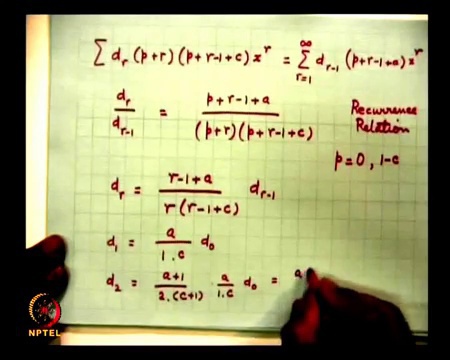 ∑ d_r (p+r) (p+r-1+c) x^r = ∑_{r=1}^{∞} d_{r-1} (p+r-1+a) x^r
d_r / d_{r-1} = (p+r-1+a) / ((p+r)(p+r-1+c))
Recurrence
Relation
p=0, 1-c
d_r = (r-1+a) / (r(r-1+c)) d_{r-1}
d_1 = a / (1.c) d_0
d_2 = (a+1) / (2.(c+1)) . a / (1.c) d_0 = a
NPTEL